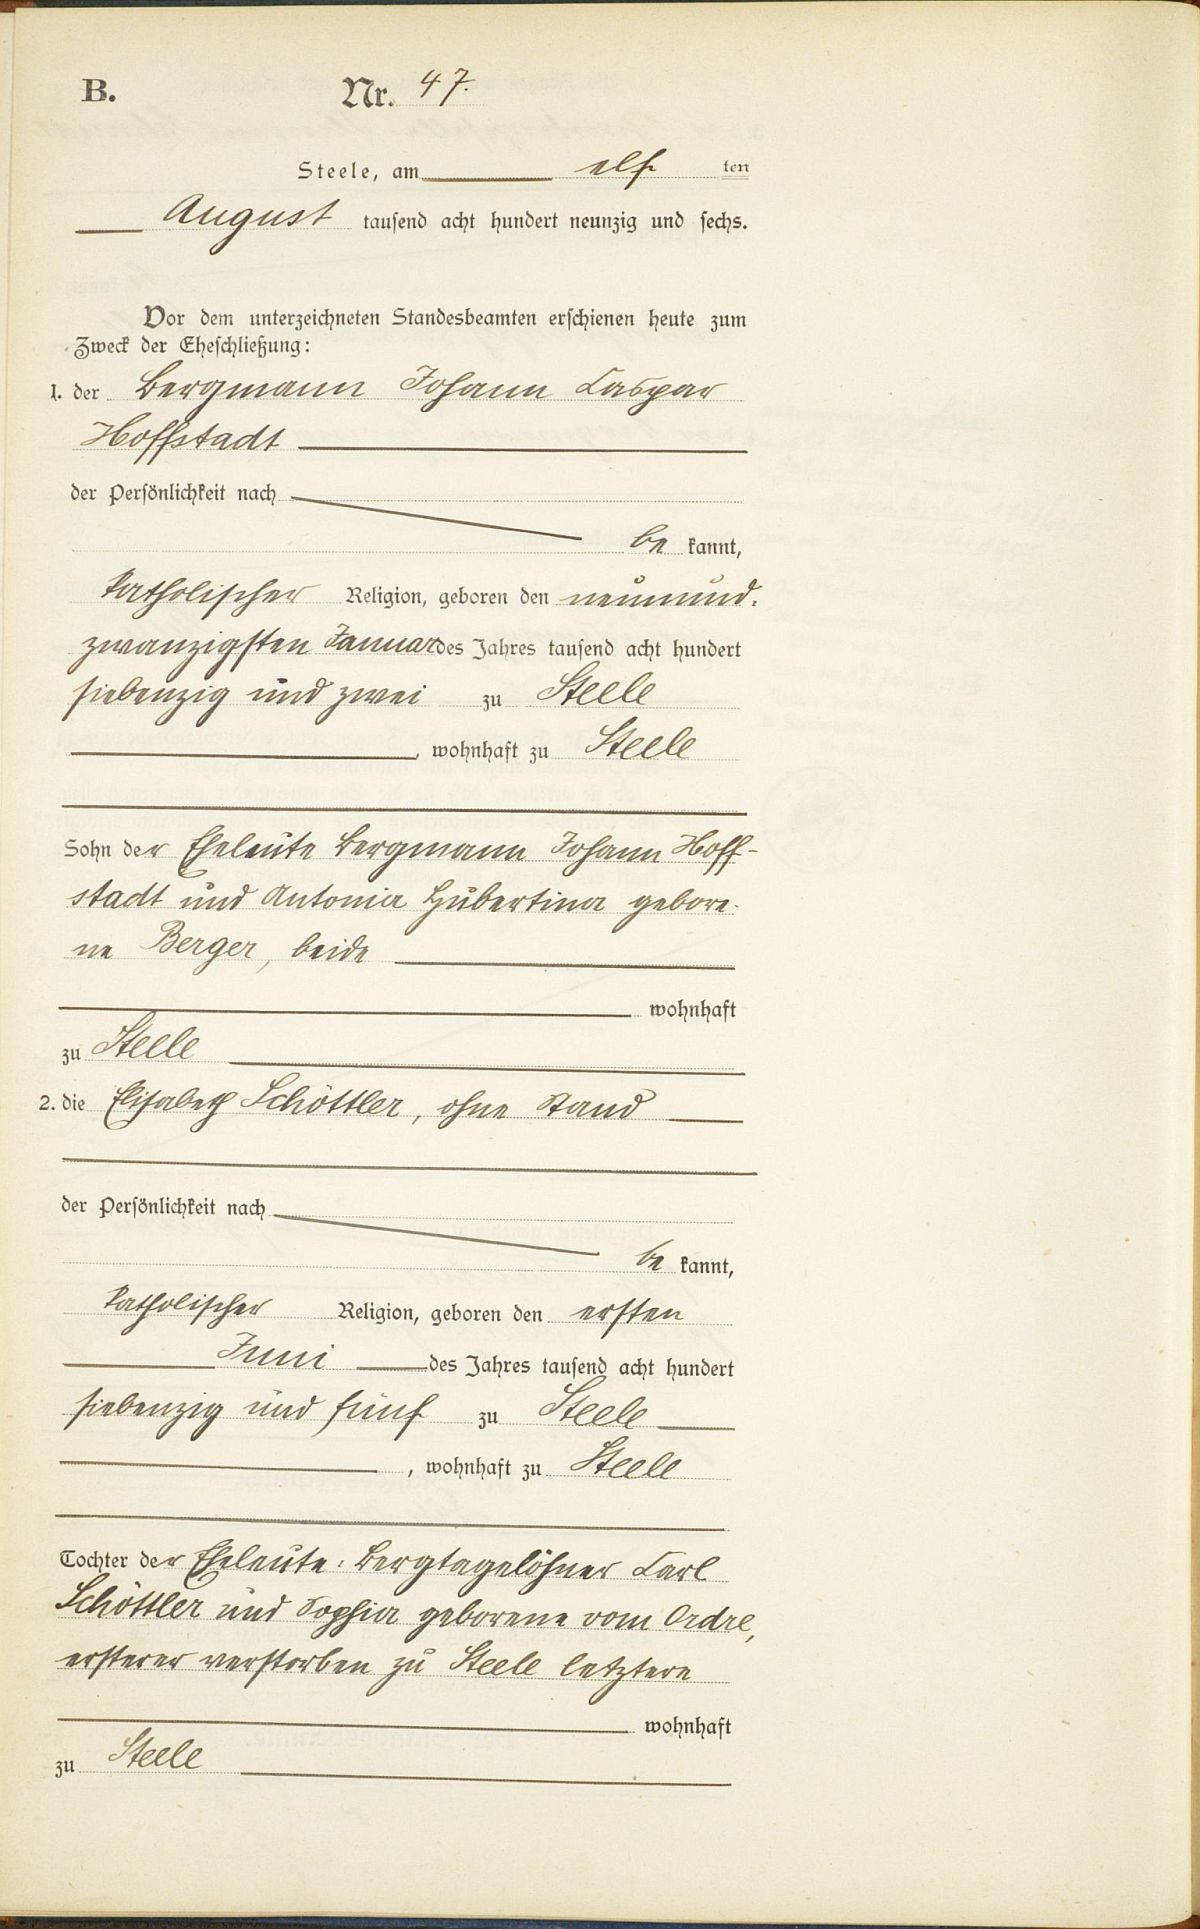 B. Nr. 47.
Steele, am elf ten
August tausend acht hundert neunzig und sechs.
Vor dem unterzeichneten Standesbeamten erschienen heute zum
Zweck der Eheschließung:
1. der Bergmann Johann Caspar
Hoffstadt
der Persönlichkeit nach
be kannt,
katholischer Religion, geboren den neunund-
zwanzigsten Januar des Jahres tausend acht hundert
siebenzig und zwei zu Steele
, wohnhaft zu Steele
Sohn der Eheleute Bergmann Johann Hoff-
stadt und Antonia Hubertina gebore-
ne Berger, beide
wohnhaft
zu Steele
2. die Elisabeth Schöttler, ohne Stand
der Persönlichkeit nach
be kannt,
katholischer Religion, geboren den ersten
Juni des Jahres tausend acht hundert
siebenzig und fünf zu Steele
, wohnhaft zu Steele
Tochter der Eheleute: Bergtagelöhner Carl
Schöttler und Sophia geborene vom Ordre,
ersterer verstorben zu Steele letztere
wohnhaft
zu Steele